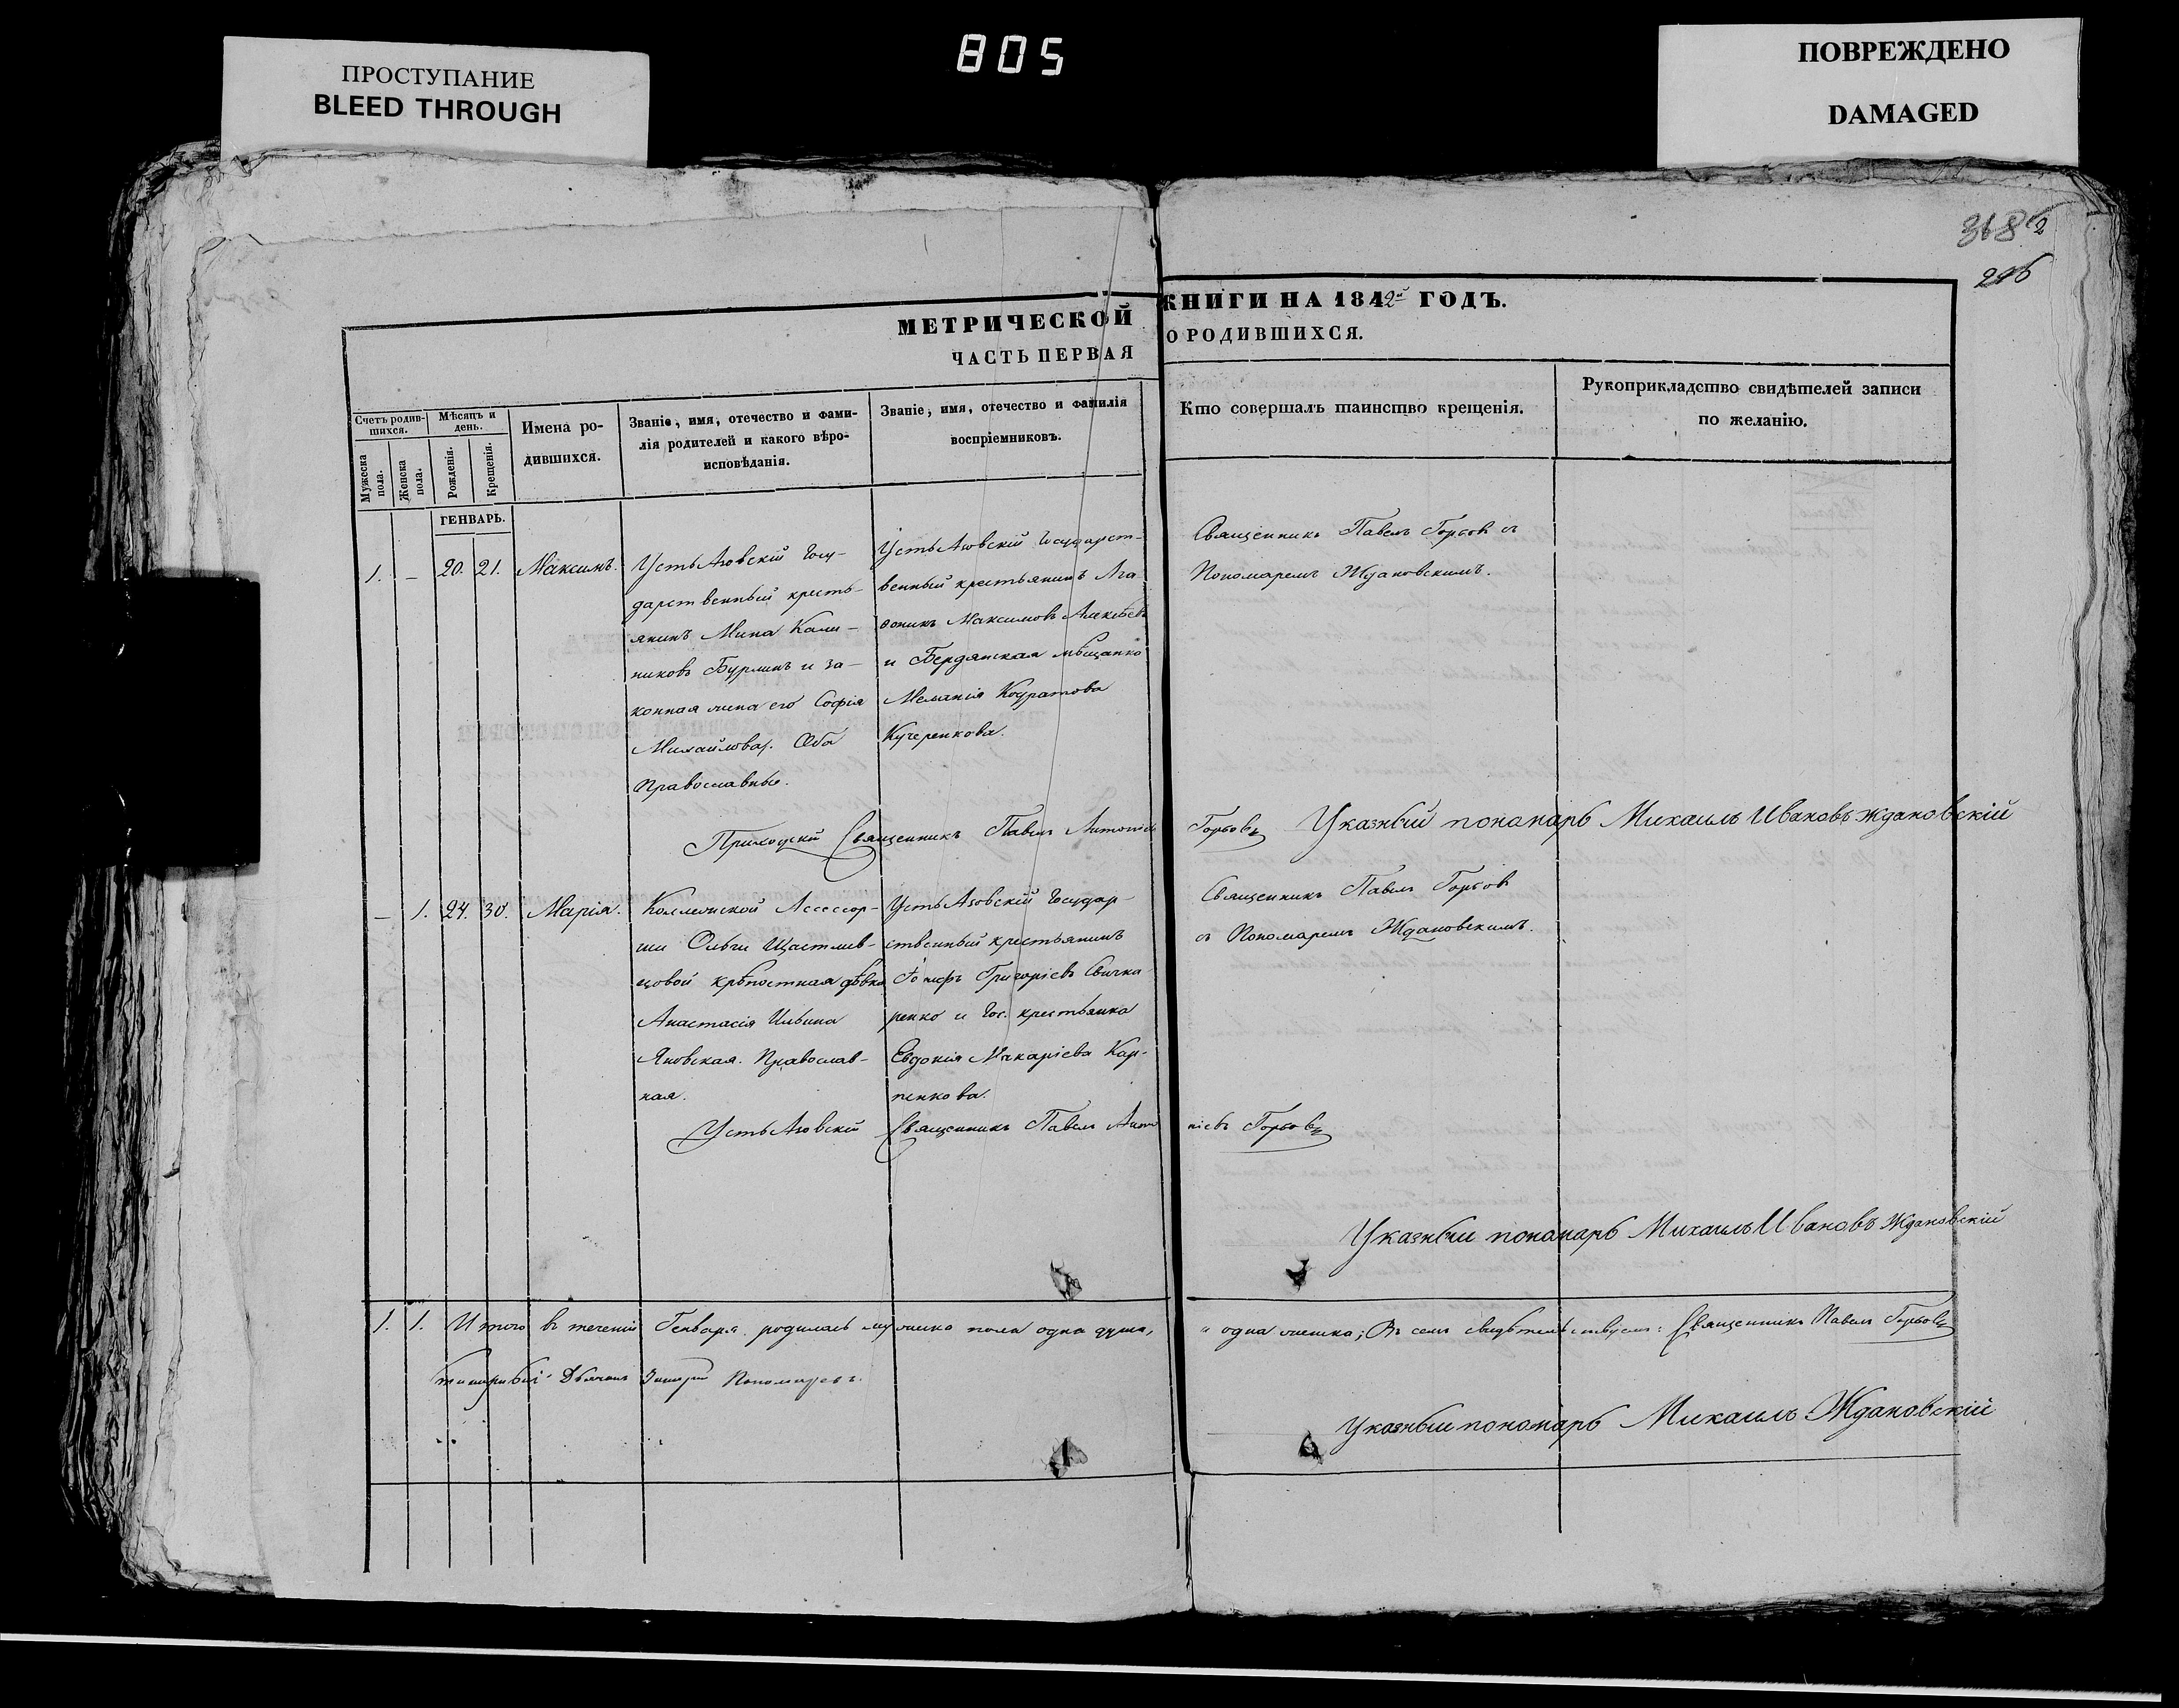 805
ПРОСТУПАНИЕ
BLEED THROUGH
ПОВРЕЖДЕНО
DAMAGED
368
МЕТРИЧЕСКОЙ КНИГИ НА 1842й ГОДЪ.
ЧАСТЬ ПЕРВАЯ О РОДИВШИХСЯ.
Счетъ родив-
шихся.
Мужеска
пола.
Женска
пола.
Мѣсяцъ и
день.
Рожденія.
Крещенія.
Имена ро-
дившихся.
Званіе, имя, отечество и фами-
лія родителей и какого вѣро-
исповѣданія.
Званіе, имя, отечество и фамилія
воспріемниковъ.
Кто совершалъ таинство крещенія.
Рукоприкладство свидѣтелей записи
по желанію.
ГЕНВАРЬ.
1. — 20. 21. Максимъ.
УстьАзовскій Госу-
дарственный кресть-
янинъ Мина Кали-
никовъ Бурлинъ и за-
конная жена его Софія
Михайлова. Оба
Православные.
УстьАзовскій Государст-
венный крестьянинъ Ага-
ѳоникъ Максимовъ Алексѣевъ
и Бердянская мѣщанка
Меланія Кодратова
Кучеренкова.
Священникъ Павелъ Горбовъ съ
Пономаремъ Ждановскимъ.
Приходскій Священникъ Павелъ Антоніевъ Горбовъ
Указный понамарь Михаилъ Ивановъ Ждановскій
— 1. 24. 30. Марія.
Коллежской Ассессор-
ши Ольги Щастлив-
цовой крѣпостная дѣвка
Анастасія Ильина
Яновская. Православ-
ная.
УстьАзовскій Государ-
ственный крестьянинъ
Іосифъ Григоріевъ Свичка-
ренко и Гос. крестьянка
Евдокія Макаріева Кар-
пенкова.
Священникъ Павелъ Горбовъ
съ Пономаремъ Ждановскимъ.
УстьАзовскій Священникъ Павелъ Антоніевъ Горбовъ
Указный понамарь Михаилъ Ивановъ Ждановскій
1. 1. Итого въ теченіи Генваря родилось мужеска пола одна душа, и одна женска; Въ семъ свидѣтельствуемъ: Священникъ Павелъ Горбовъ
Дьячокъ Пономаревъ.
Указный понамарь Михаилъ Ждановскій